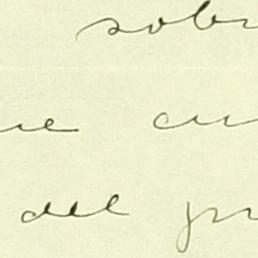 sobr
ue cu
del pr